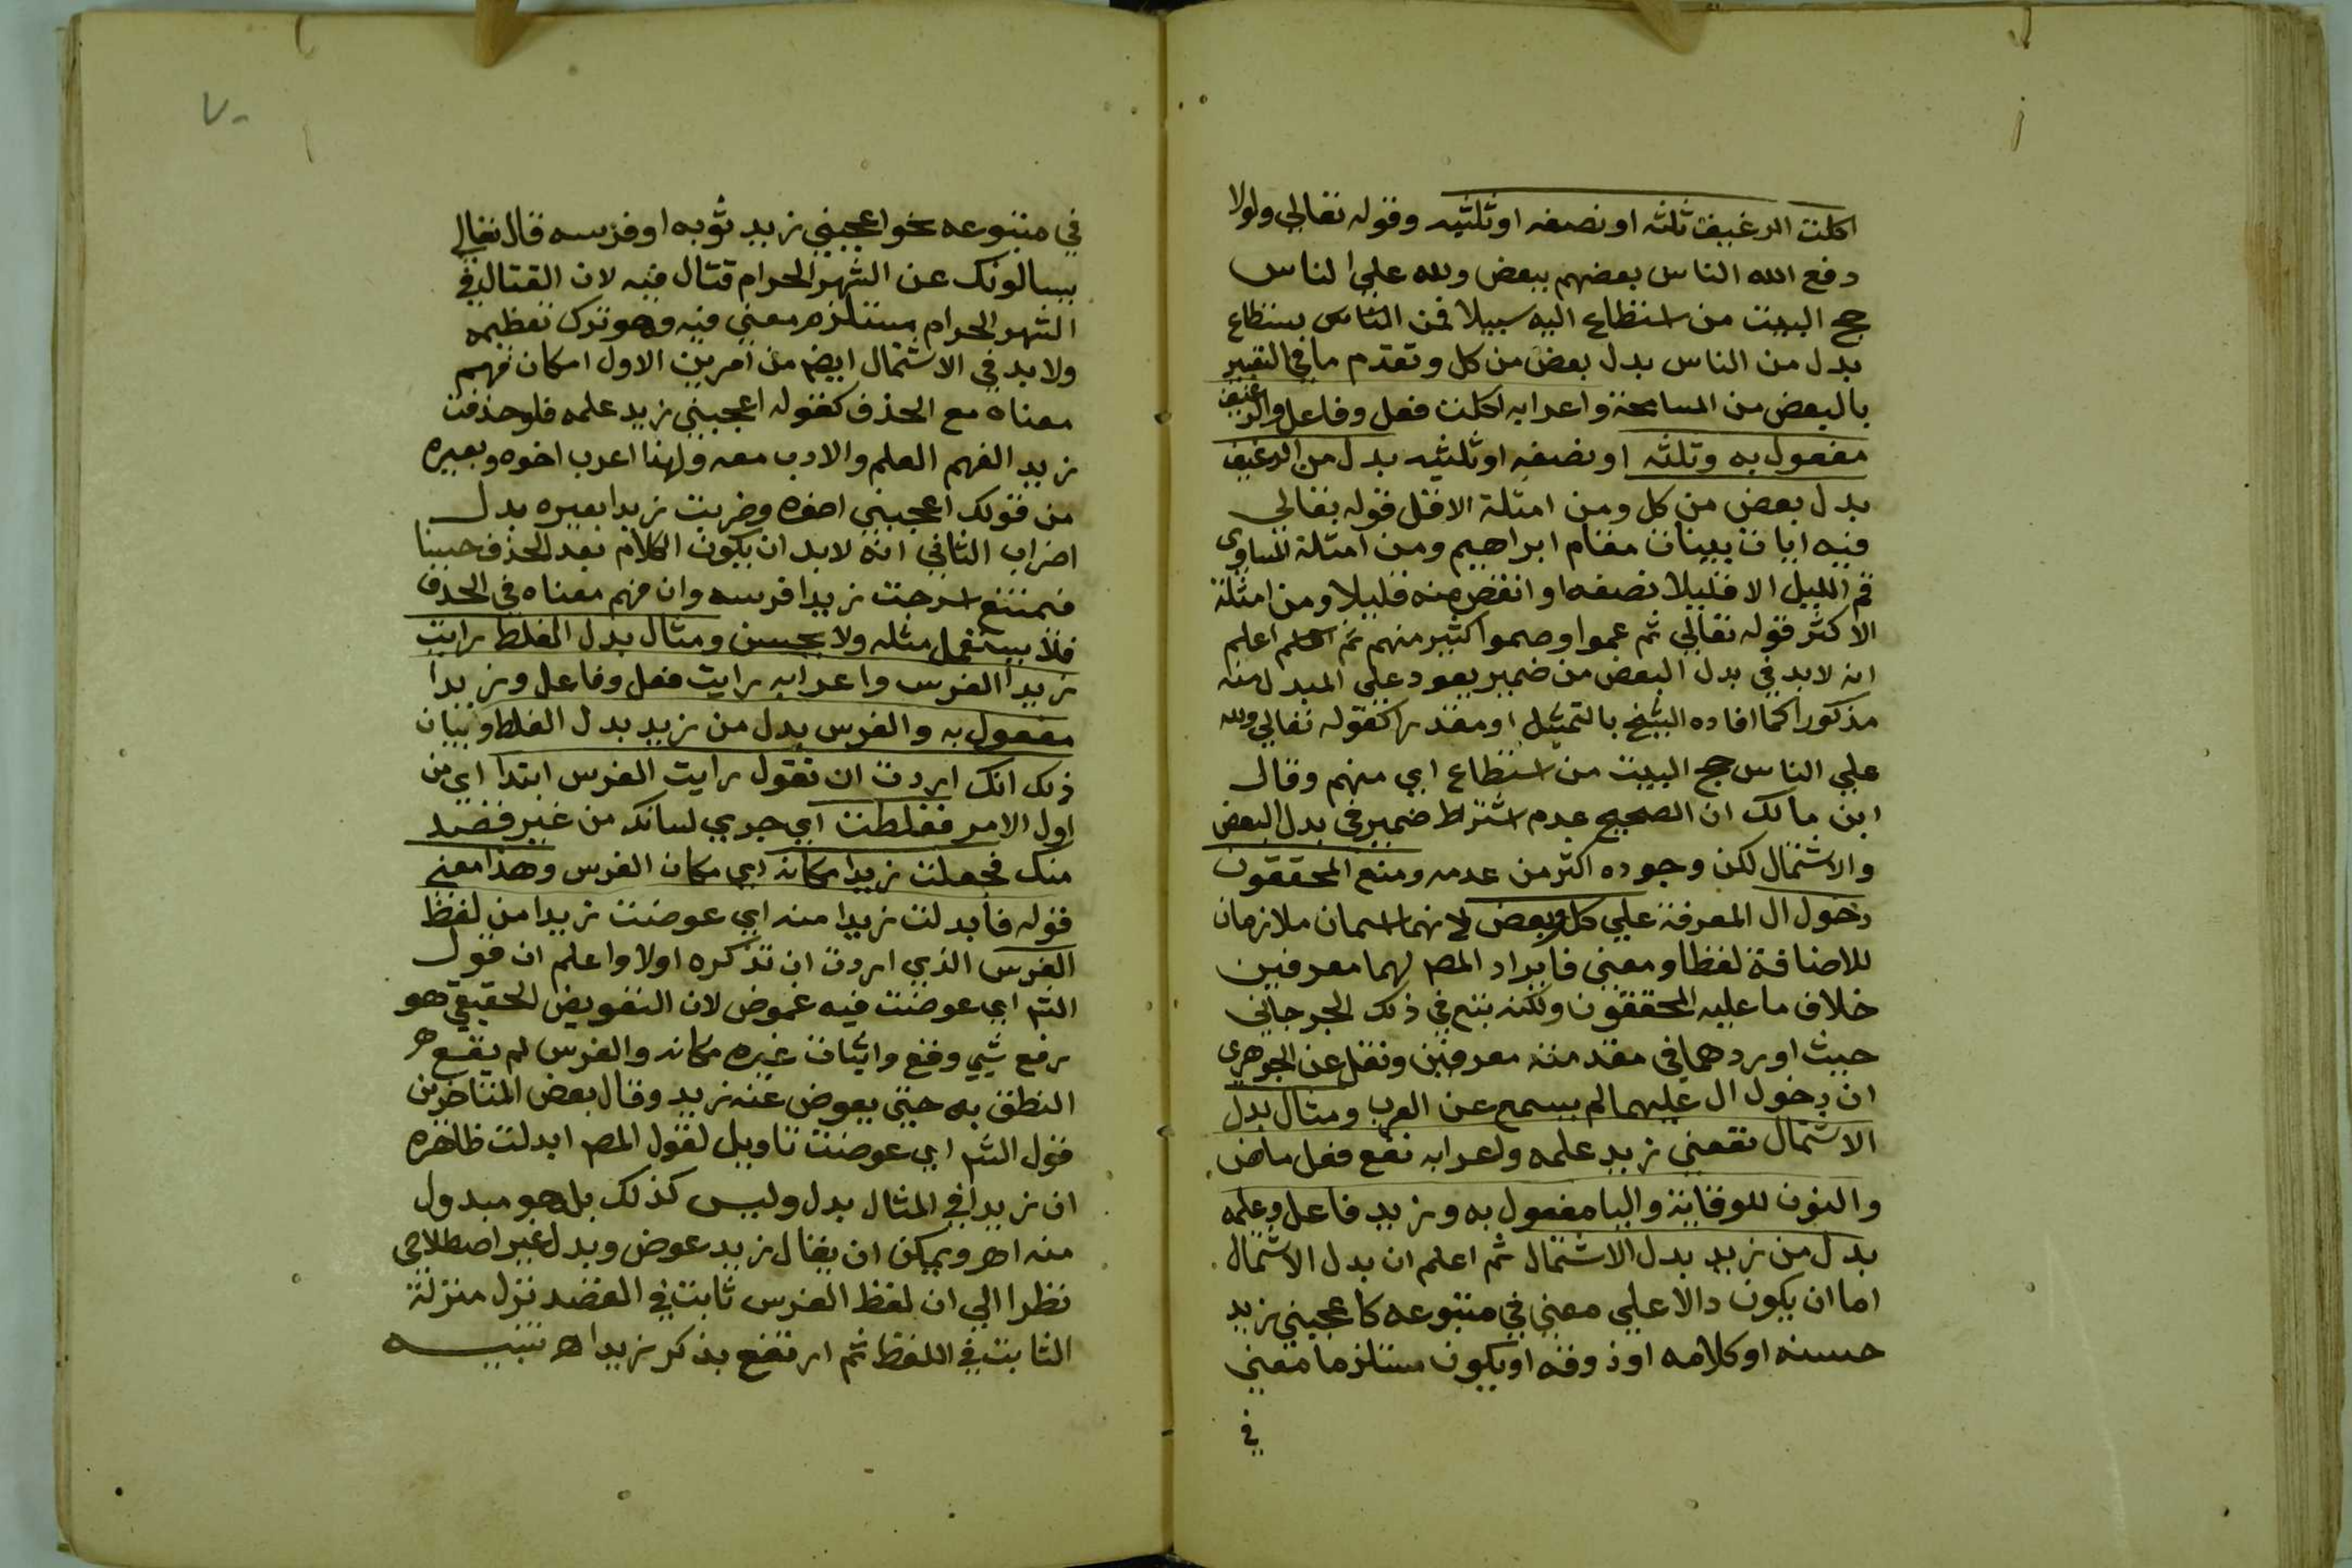 اكلت الرغيف ثلثه او نصفه او ثلثيه وقوله تعالي ولولا
دفع الله الناس بعضهم ببعض ولله علي الناس
حج البيت من استطاع اليه سبيلا فمن الناس يستطاع
بدل من الناس بدل بعض من كل وتقدم ما في التعبير
بالبعض من المسامحة واعرابه اكلت فعل وفاعل والرغيف
مفعول به وثلثه او نصفه او ثلثيه بدل من الرغيف
بدل بعض من كل ومن امثلة الاقل قوله تعالي
فيه ايات بينات مقام ابراهيم ومن امثلة المساوي
قم الليل الا قليلا نصفه او انقص منه قليلا ومن امثلة
الاكثر قوله تعالي ثم عموا وصموا كثير منهم ثم اعلم
انه لابد في بدل البعض من ضمير يعود علي المبدل منه
مذكورا كما افاده الشيخ بالتمثيل او مقدرا كقوله تعالي ولله
علي الناس حج البيت من استطاع اي منهم وقال
ابن مالك ان الصحيح عدم اشتراط ضمير في بدل البعض
والاشتمال لكن وجوده اكثر من عدمه ومنع المحققون
دخول ال المعرفة علي كل وبعض لانهما اسمان ملازمان
للاضافة لفظا ومعني فايراد المصـ لهما معرفين
خلاف ما عليه المحققون ولكنه تبع في ذلك الجرجاني
حيث اوردهما في مقدمته معرفين ونقل عن الجوهري
ان دخول ال عليهما لم يسمع عن العرب ومثال بدل
الاشتمال نفعني زيد علمه واعرابه نفع فعل ماض
والنون للوقاية واليا مفعول به وزيد فاعل وعلمه
بدل من زيد بدل الاشتمال ثم اعلم ان بدل الاشتمال
اما ان يكون دالا علي معني في متبوعه كاعجبني زيد
حسنه او كلامه او ذوقه او يكون مستلزما معني
في
٧٠
في متبوعه نحو اعجبني زيد ثوبه او فرسه قال تعالي
يسالونك عن الشهر الحرام قتال فيه لان القتال في
الشهر الحرام يستلزم معني فيه وهو ترك تعظيمه
ولابد في الاشتمال ايضـ من امرين الاول امكان فهم
معناه مع الحذف كقوله اعجبني زيد علمه فلو حذفت
زيد الفهم العلم والادب معه ولهذا اعرب اخوه وبعيره
من قولك اعجبني اخوه وضربت زيدا بعيره بدل
اضراب الثاني انه لابد ان يكون الكلام بعد الحذف حسنا
فيمتنع اسرجت زيدا فرسه وان فهم معناه في الحذف
فلا يستعمل مثله ولا يحسن ومثال بدل الغلط رايت
زيدا الفرس واعرابه رايت فعل وفاعل وزيدا
مفعول به والفرس بدل من زيد بدل الغلط وبيان
ذلك انك اردت ان تقول رايت الفرس ابتدا اي من
اول الامر فغلطت اي جري لسانك من غير قصد
منك فجعلت زيدا مكانه اي مكان الفرس وهذا معني
قوله فابدلت زيدا منه اي عوضت زيدا من لفظ
الفرس الذي اردت ان تذكره اولا واعلم ان قول
الشـ اي عوضت فيه غموض لان التعويض الحقيقي هو
رفع شي وقع واثبات غيره مكانه والفرس لم يقع
النطق به حتي يعوض عنه زيد وقال بعض المتاخرين
قول الشـ اي عوضت تاويل لقول المصـ ابدلت ظاهره
ان زيدا في المثال بدل وليس كذلك بل هو مبدول
منه اهـ ويمكن ان يقال زيد عوض وبدل غير اصطلاحي
نظرا الي ان لفظ الفرس ثابت في القصد نزل منزلة
الثابت في اللفظ ثم ارتفع بذكر زيدا اهـ تنبيه